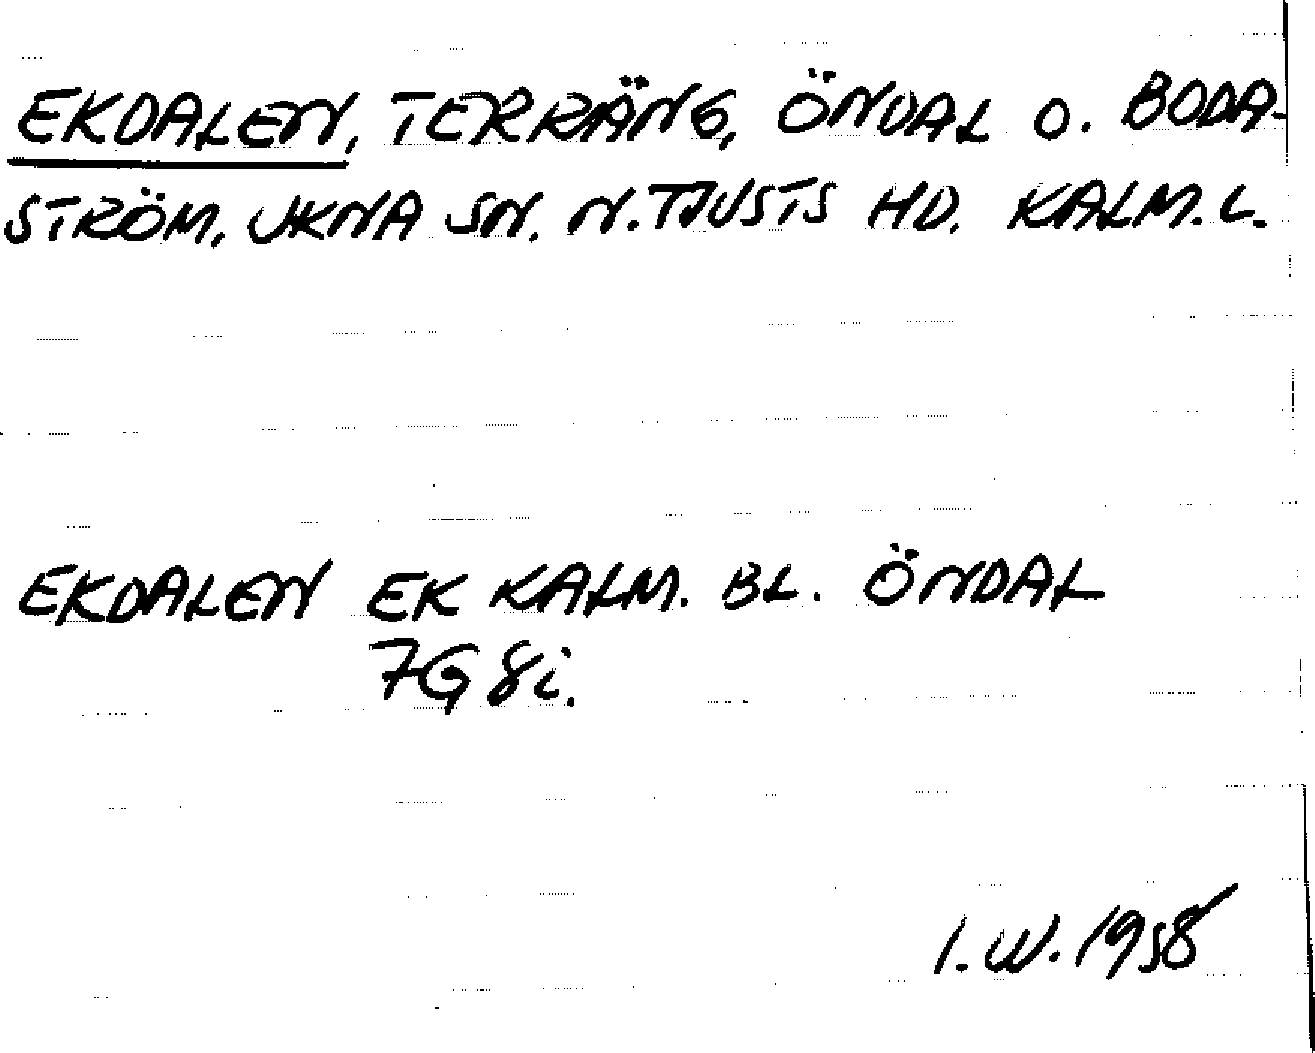 EKDALEN, TERRÄNG, ÖNDAL O. BODA-
STRÖM, UKNA SN. N. TJUSTS HD. KALM. L.
EKDALEN EK KALM. BL. ÖNDAL
7G 8i.
I. W. 1958